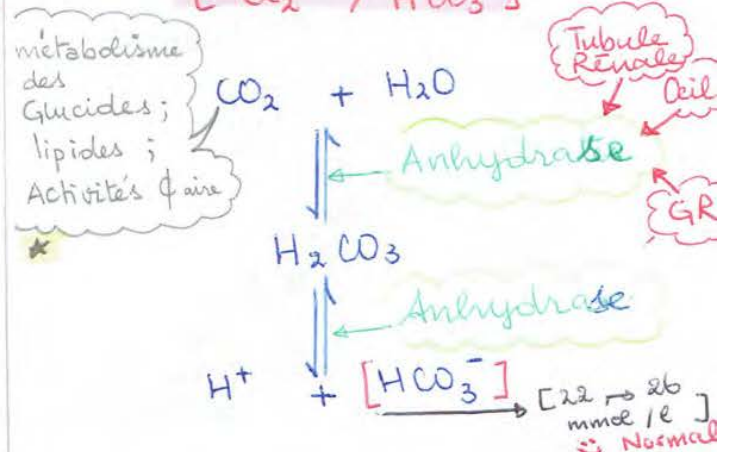 métabolisme
des
Glucides ;
lipides ;
Activités ɸ aire
CO₂ + H₂O
Tubule
Rénale
Œil
Anhydrase
GR
H₂CO₃
Anhydrase
H⁺ + [HCO₃⁻]
[22 → 26
mmol/l ]
Normal